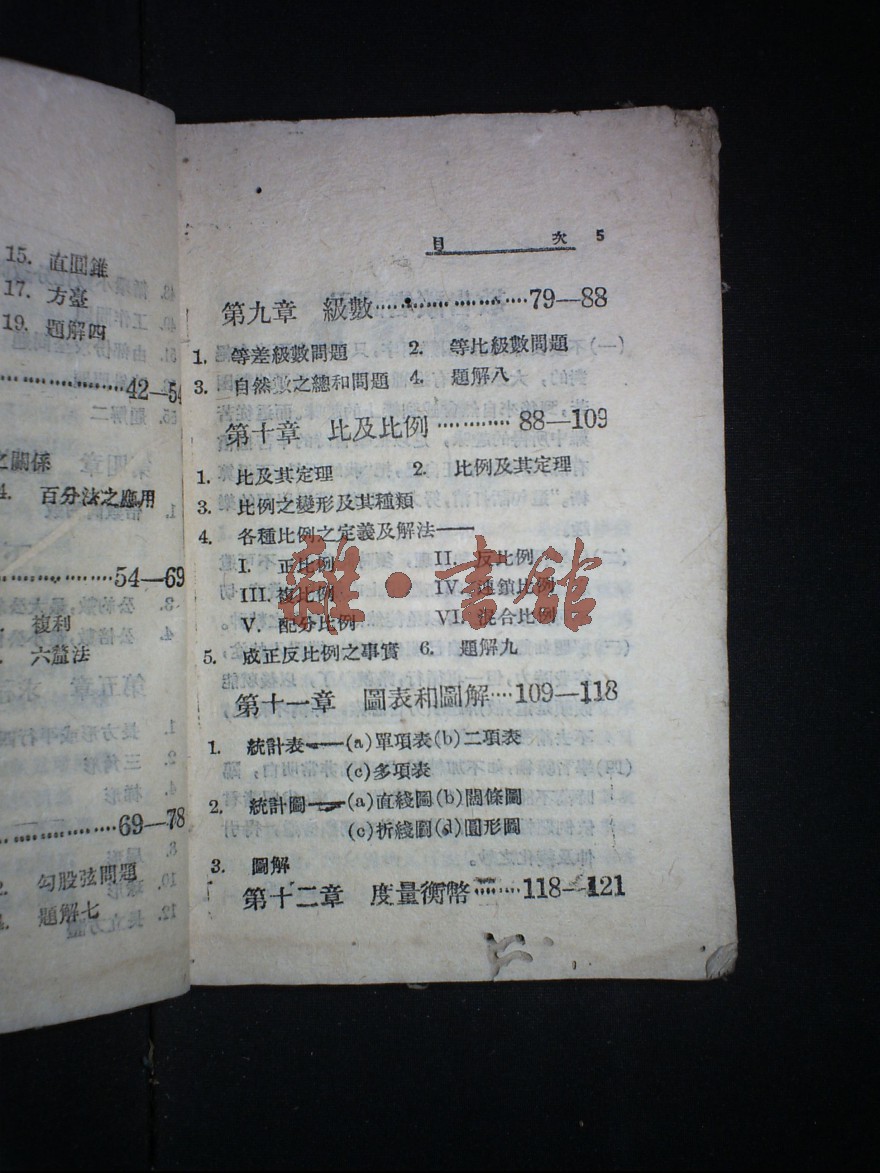 15. 直圓錐
17. 方臺
19. 題解四
42—54
之關係
4. 百分法之應用
54—69
複利
六釐法
69—78
勾股弦問題
題解七
目 次 5
第九章 級數⋯⋯⋯⋯79—88
1. 等差級數問題 2. 等比級數問題
3. 自然數之總和問題 4. 題解八
第十章 比及比例⋯⋯⋯⋯88—109
1. 比及其定理 2. 比例及其定理
3. 比例之變形及其種類
4. 各種比例之定義及解法——
I. 正比例 II. 反比例
III. 複比例 IV. 連鎖比例
V. 配分比例 VI. 混合比例
5. 成正反比例之事實 6. 題解九
第十一章 圖表和圖解⋯⋯109—118
1. 統計表——(a)單項表(b)二項表
(c)多項表
2. 統計圖——(a)直綫圖(b)關條圖
(c)折綫圖(d)圓形圖
3. 圖解
第十二章 度量衡幣⋯⋯118—121
雜·書館